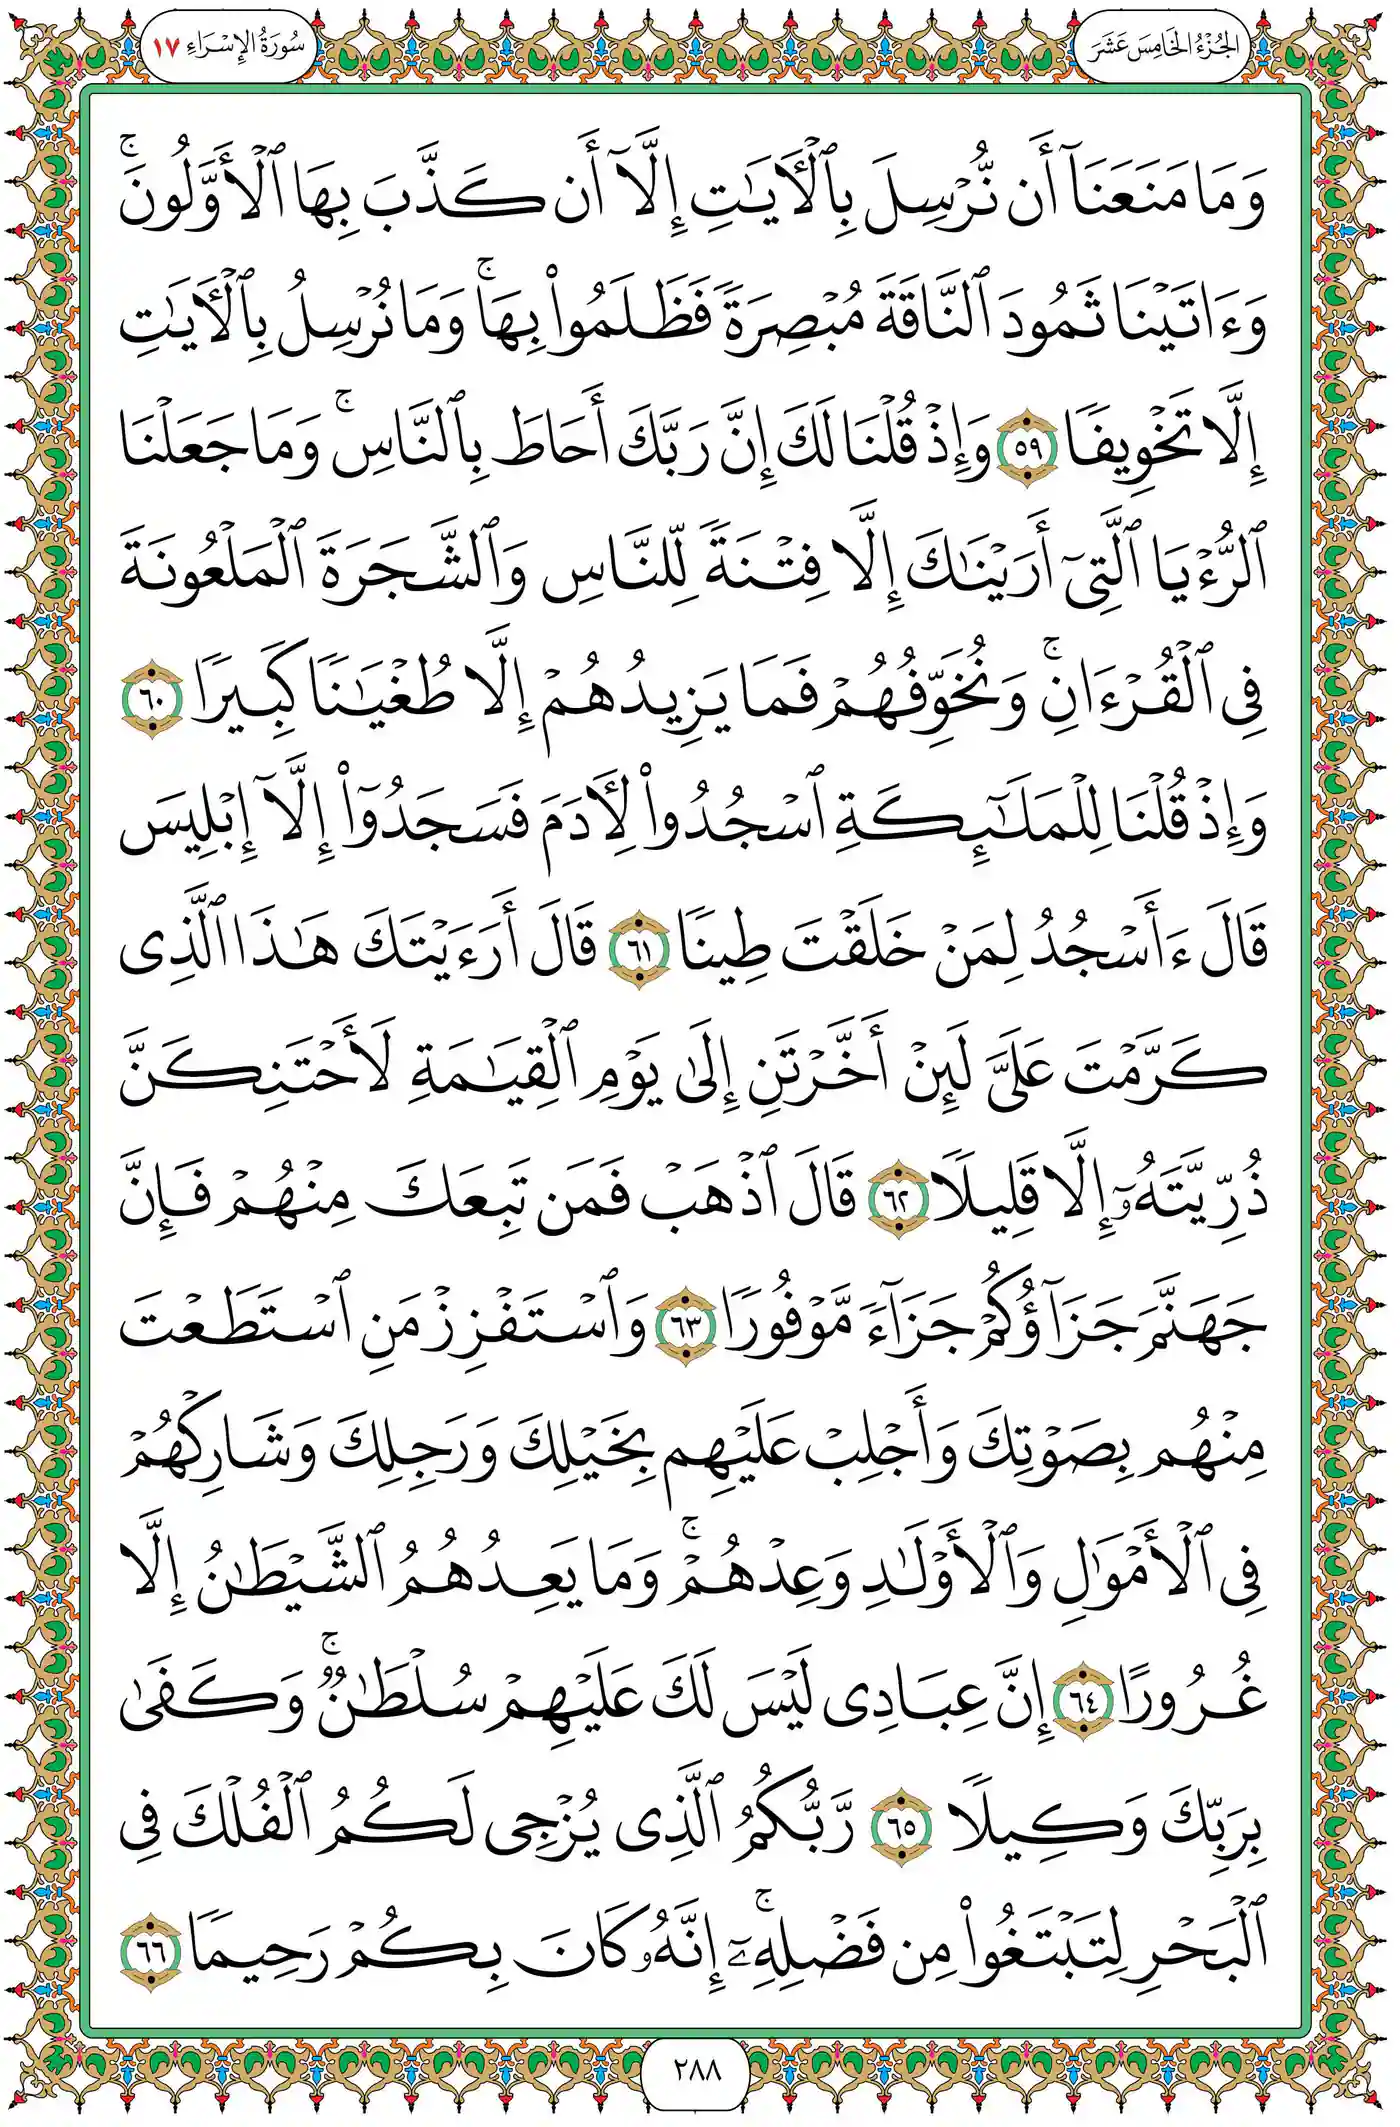 الجُزْءُ الخَامِسَ عَشَرَ
سُورَةُ الإِسْرَاءِ ١٧
وَمَا مَنَعَنَآ أَن نُّرْسِلَ بِٱلْأَيَٰتِ إِلَّآ أَن كَذَّبَ بِهَا ٱلْأَوَّلُونَۚ
وَءَاتَيْنَا ثَمُودَ ٱلنَّاقَةَ مُبْصِرَةً فَظَلَمُوا۟ بِهَاۚ وَمَا نُرْسِلُ بِٱلْأَيَٰتِ
إِلَّا تَخْوِيفًا ٥٩ وَإِذْ قُلْنَا لَكَ إِنَّ رَبَّكَ أَحَاطَ بِٱلنَّاسِۚ وَمَا جَعَلْنَا
ٱلرُّءْيَا ٱلَّتِىٓ أَرَيْنَٰكَ إِلَّا فِتْنَةً لِّلنَّاسِ وَٱلشَّجَرَةَ ٱلْمَلْعُونَةَ
فِى ٱلْقُرْءَانِۚ وَنُخَوِّفُهُمْ فَمَا يَزِيدُهُمْ إِلَّا طُغْيَٰنًا كَبِيرًا ٦٠
وَإِذْ قُلْنَا لِلْمَلَٰٓئِكَةِ ٱسْجُدُوا۟ لِأَدَمَ فَسَجَدُوٓا۟ إِلَّآ إِبْلِيسَ
قَالَ ءَأَسْجُدُ لِمَنْ خَلَقْتَ طِينًا ٦١ قَالَ أَرَءَيْتَكَ هَٰذَا ٱلَّذِى
كَرَّمْتَ عَلَىَّ لَئِنْ أَخَّرْتَنِ إِلَىٰ يَوْمِ ٱلْقِيَٰمَةِ لَأَحْتَنِكَنَّ
ذُرِّيَّتَهُۥٓ إِلَّا قَلِيلًا ٦٢ قَالَ ٱذْهَبْ فَمَن تَبِعَكَ مِنْهُمْ فَإِنَّ
جَهَنَّمَ جَزَآؤُكُمْ جَزَآءً مَّوْفُورًا ٦٣ وَٱسْتَفْزِزْ مَنِ ٱسْتَطَعْتَ
مِنْهُم بِصَوْتِكَ وَأَجْلِبْ عَلَيْهِم بِخَيْلِكَ وَرَجِلِكَ وَشَارِكْهُمْ
فِى ٱلْأَمْوَٰلِ وَٱلْأَوْلَٰدِ وَعِدْهُمْۚ وَمَا يَعِدُهُمُ ٱلشَّيْطَٰنُ إِلَّا
غُرُورًا ٦٤ إِنَّ عِبَادِى لَيْسَ لَكَ عَلَيْهِمْ سُلْطَٰنٌۚ وَكَفَىٰ
بِرَبِّكَ وَكِيلًا ٦٥ رَّبُّكُمُ ٱلَّذِى يُزْجِى لَكُمُ ٱلْفُلْكَ فِى
ٱلْبَحْرِ لِتَبْتَغُوا۟ مِن فَضْلِهِۦٓۚ إِنَّهُۥ كَانَ بِكُمْ رَحِيمًا ٦٦
٢٨٨